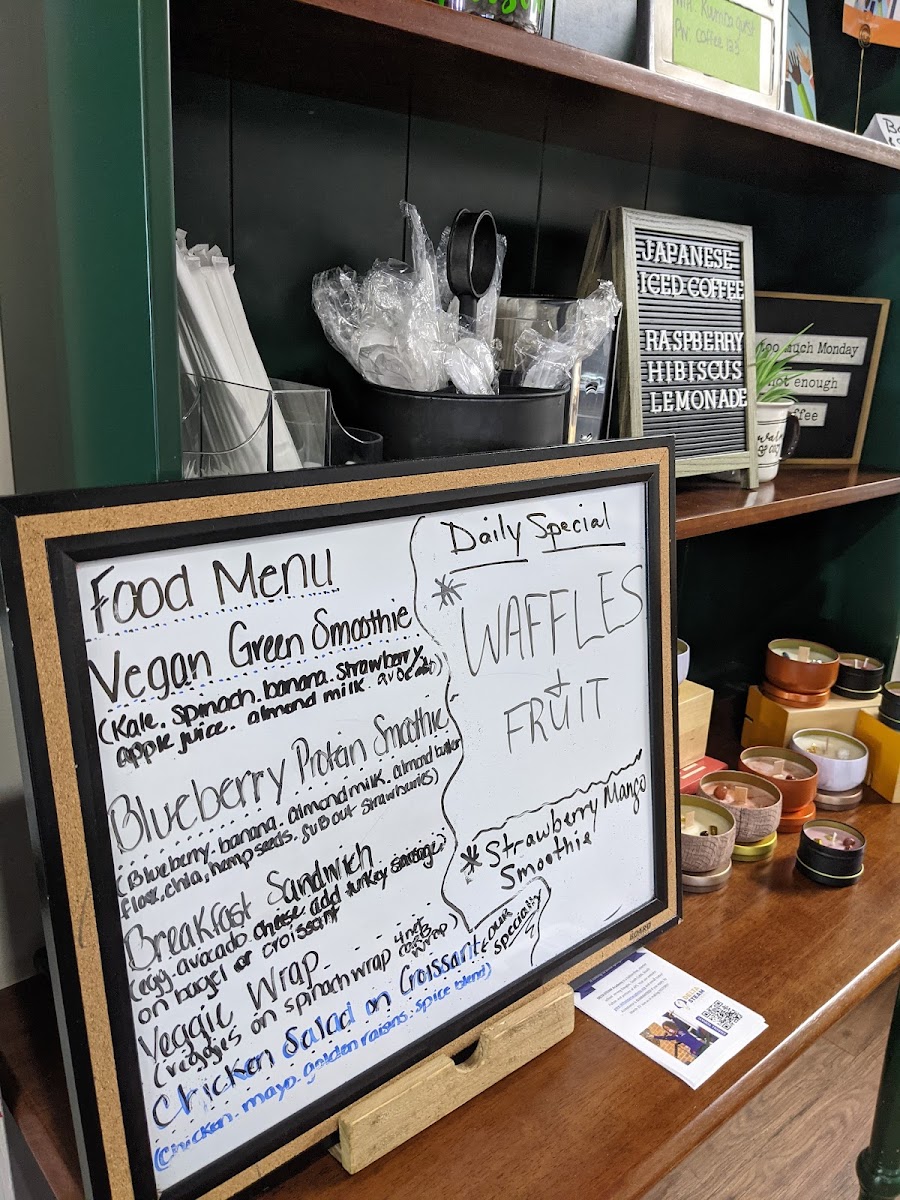 Guest
PW: coffee 123
JAPANESE
ICED COFFEE
RASPBERRY
HIBISCUS
LEMONADE
too much Monday
not enough
coffee
Food Menu
Vegan Green Smoothie
(Kale. Spinach. banana. strawberry
apple juice. almond milk. avocado)
Blueberry Protein Smoothie
(Blueberry. banana. almond milk. almond butter
flax, chia, hemp seeds. sub out strawburies)
Breakfast Sandwich
(egg. avocado. cheese. add turkey sausage
on bagel or croissant
Veggie Wrap
(veggies on spinach wrap 4 net carb wrap)
Chicken Salad on Croissant OUR specialty
(Chicken. mayo. golden raisins. spice blend)
Daily Special
* WAFFLES
+
FRUIT
* Strawberry Mango
Smoothie
BOARD
STEAM